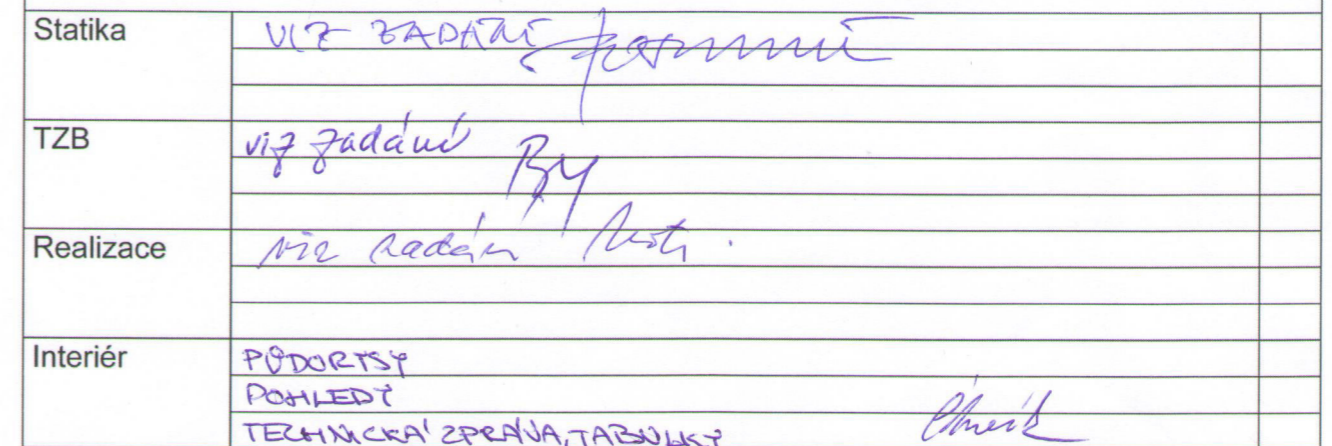 Statika VIZ ZADÁNÍ
TZB viz zadání
Realizace viz zadání
Interiér PŮDORYSY
POHLEDY
TECHNICKÁ ZPRÁVA, TABULKY